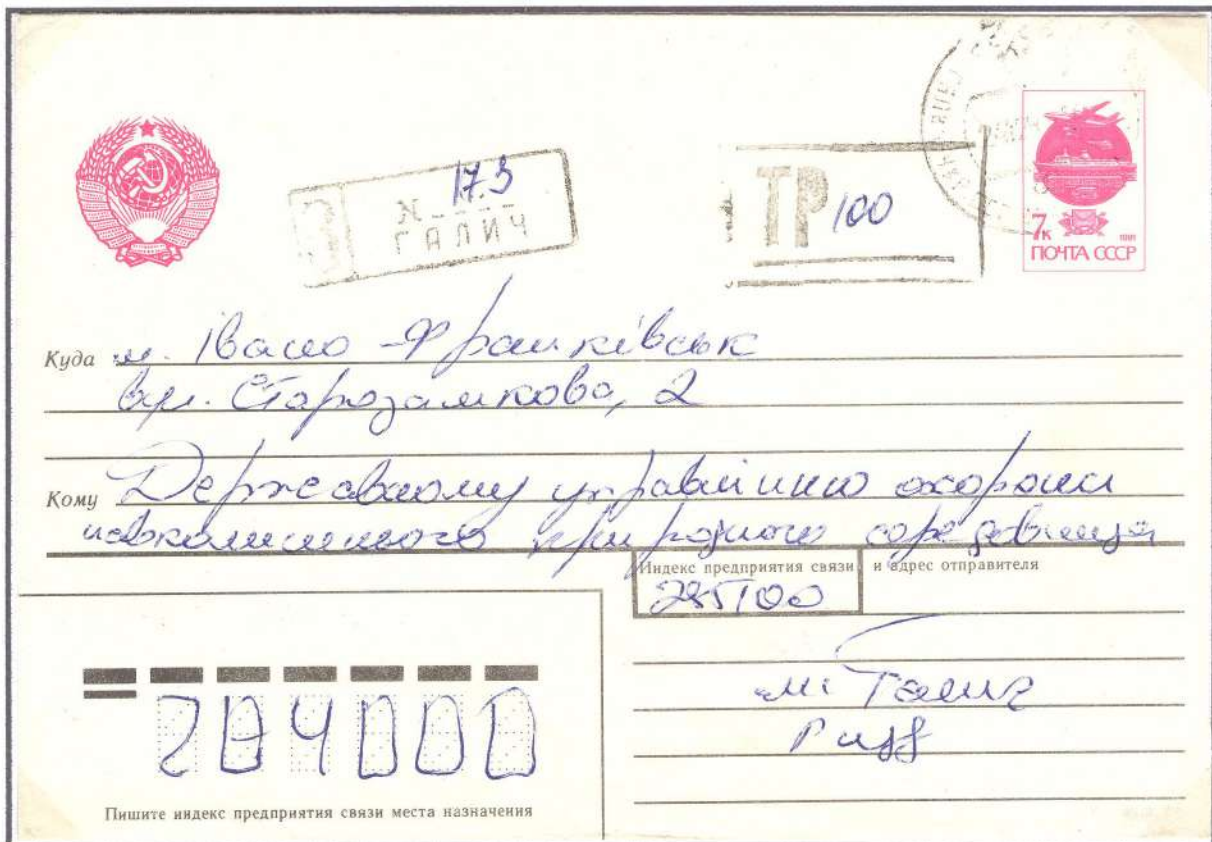 17.3
З № ГАЛИЧ
ТР 100
7к 1991
ПОЧТА СССР
Куда м. Івано-Франківськ
вул. Старозамкова, 2
Кому Державному управлінню охорони
навколишнього природного середовища
Индекс предприятия связи и адрес отправителя
285100
м. Галич
284000
Пишите индекс предприятия связи места назначения